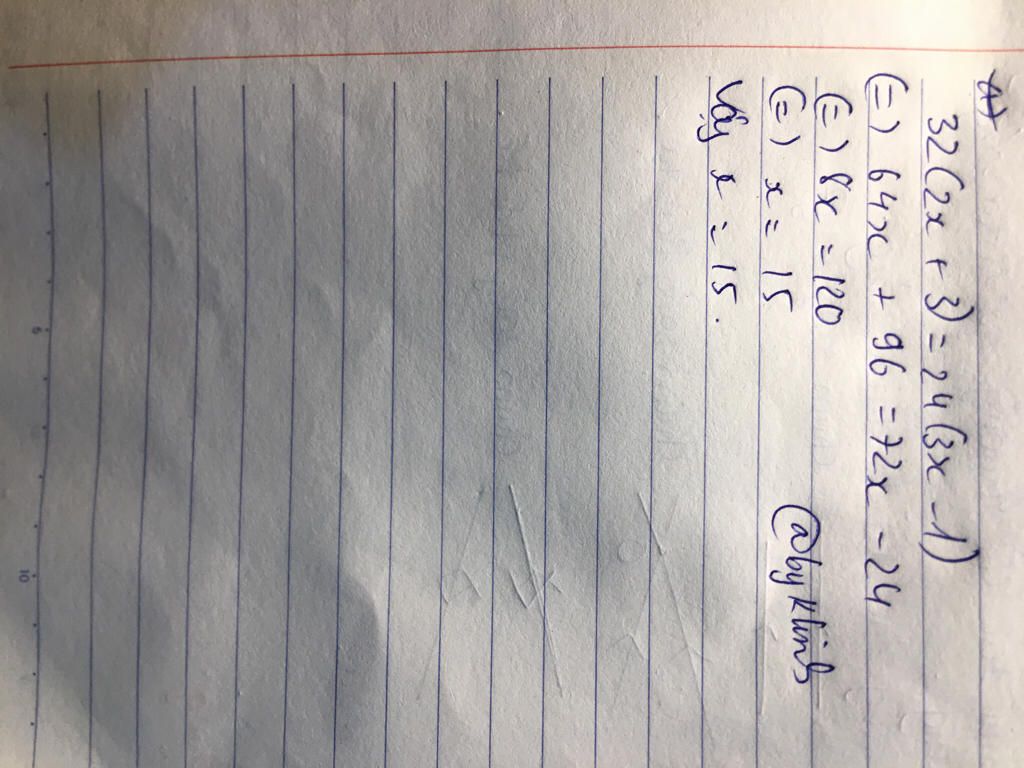 32(2x + 3) = 24(3x - 1)
(=) 64x + 96 = 72x - 24
(=) 8x = 120
(=) x = 15
Vậy x = 15.
5
10